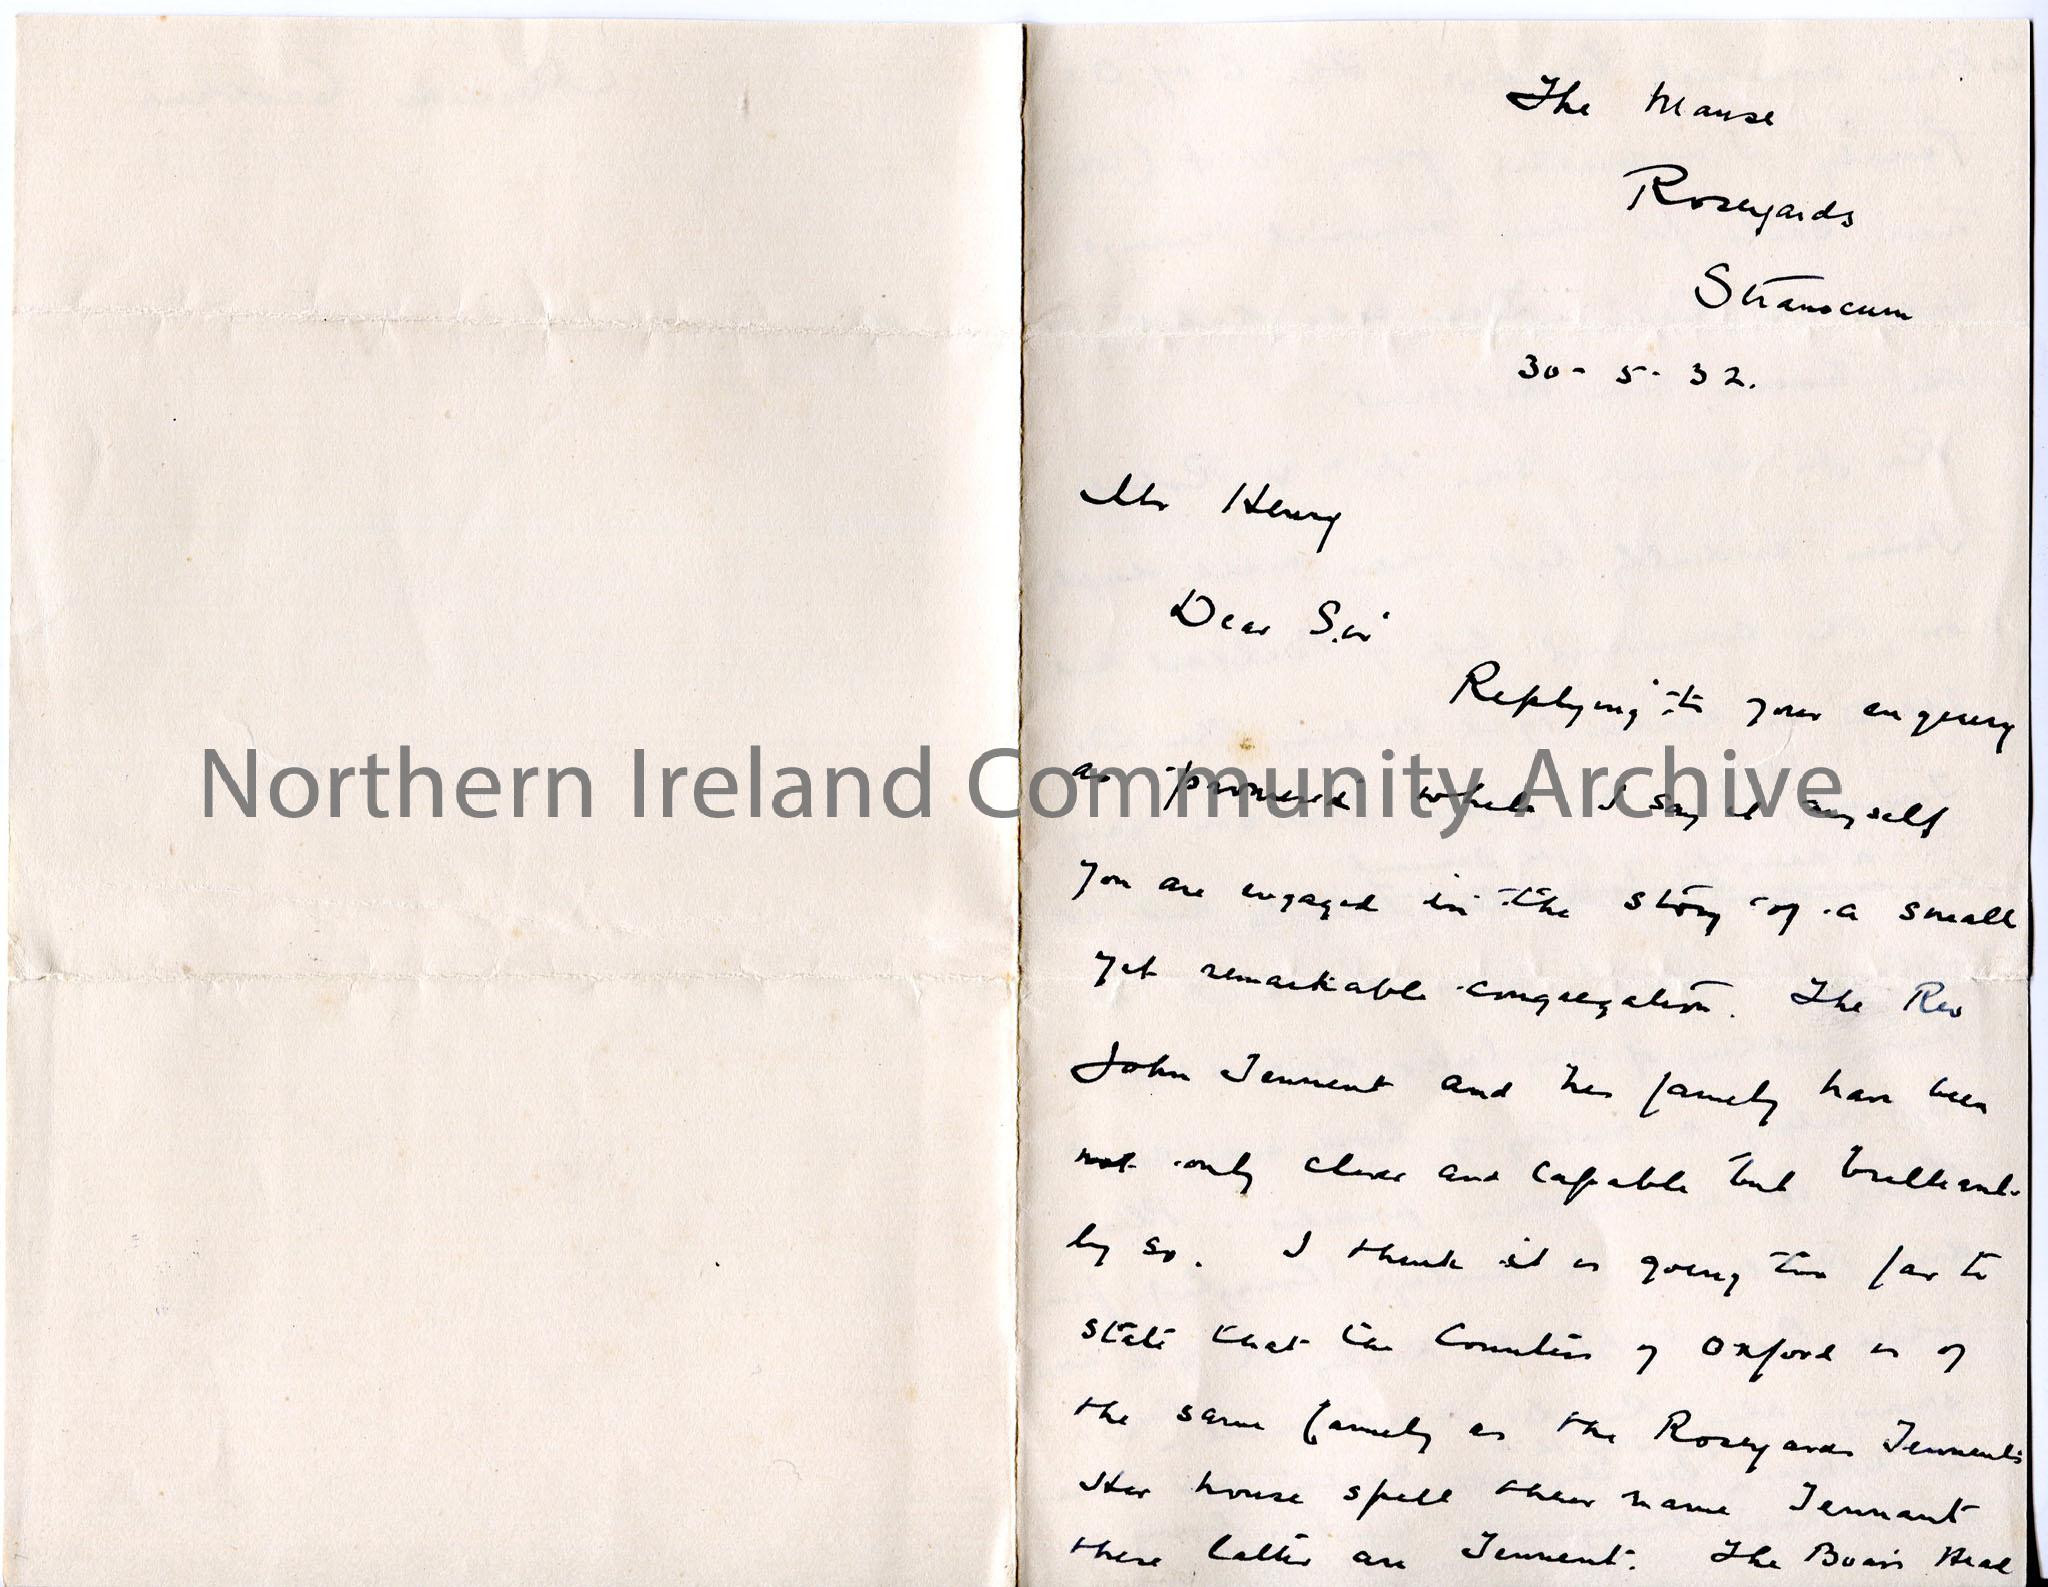 The Manse
Roseyards
Stranocum
30-5-32.
Mr Henry
Dear Sir
Replying to your enquiry
as promised while I say it myself
you are engaged in the story of a small
yet remarkable congregation. The Rev
John Tennent and his family have been
not only clever and capable but brilliant-
ly so. I think it is going too far to
state that the Countess of Oxford is of
the same family as the Roseyards Tennents
Her house spell their name Tennant
these latter are Tennent. The Boar's Head
Northern Ireland Community Archive